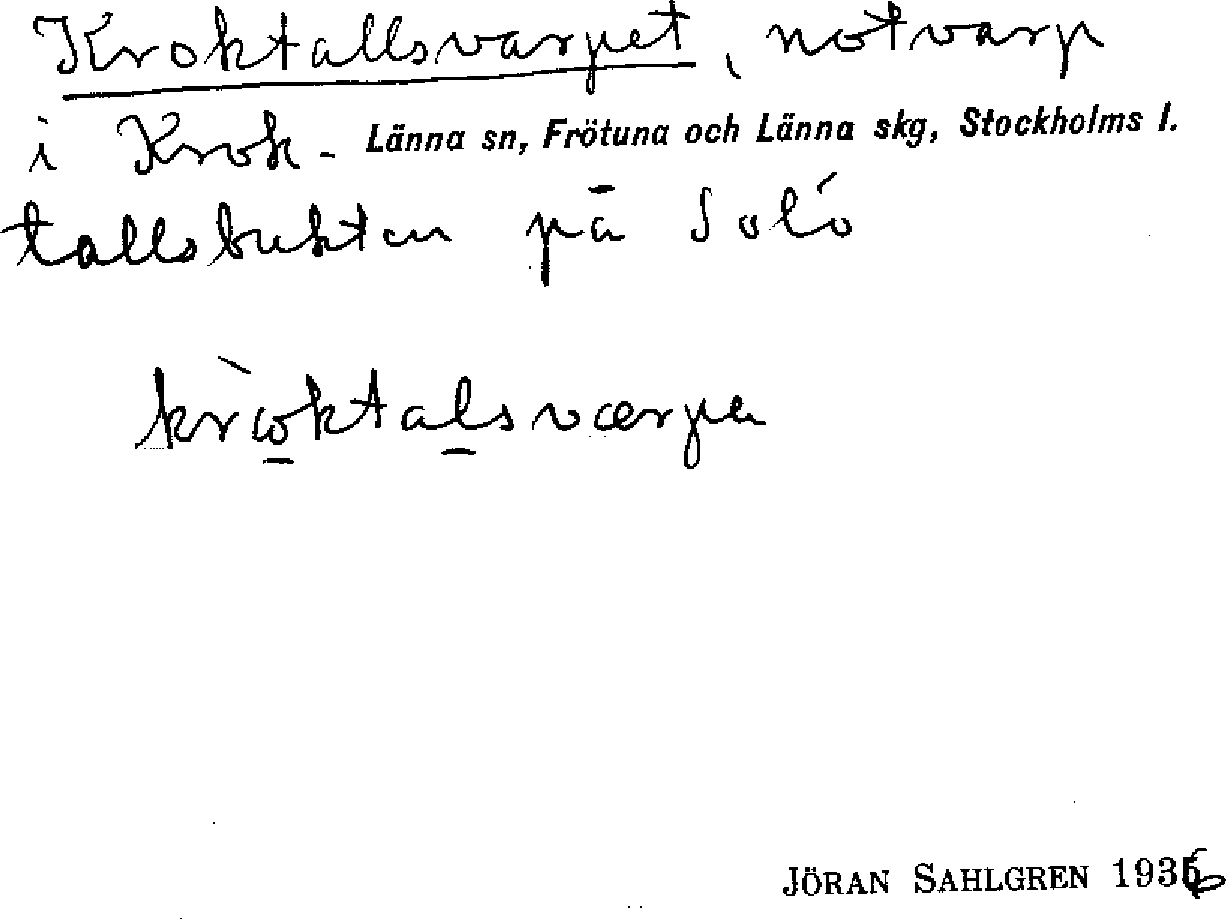 Kroktallsvarpet, notvarp
i Krok- Länna sn, Frötuna och Länna skg, Stockholms l.
tallsbukten på Solö
krὼktalsværpa
JÖRAN SAHLGREN 1936